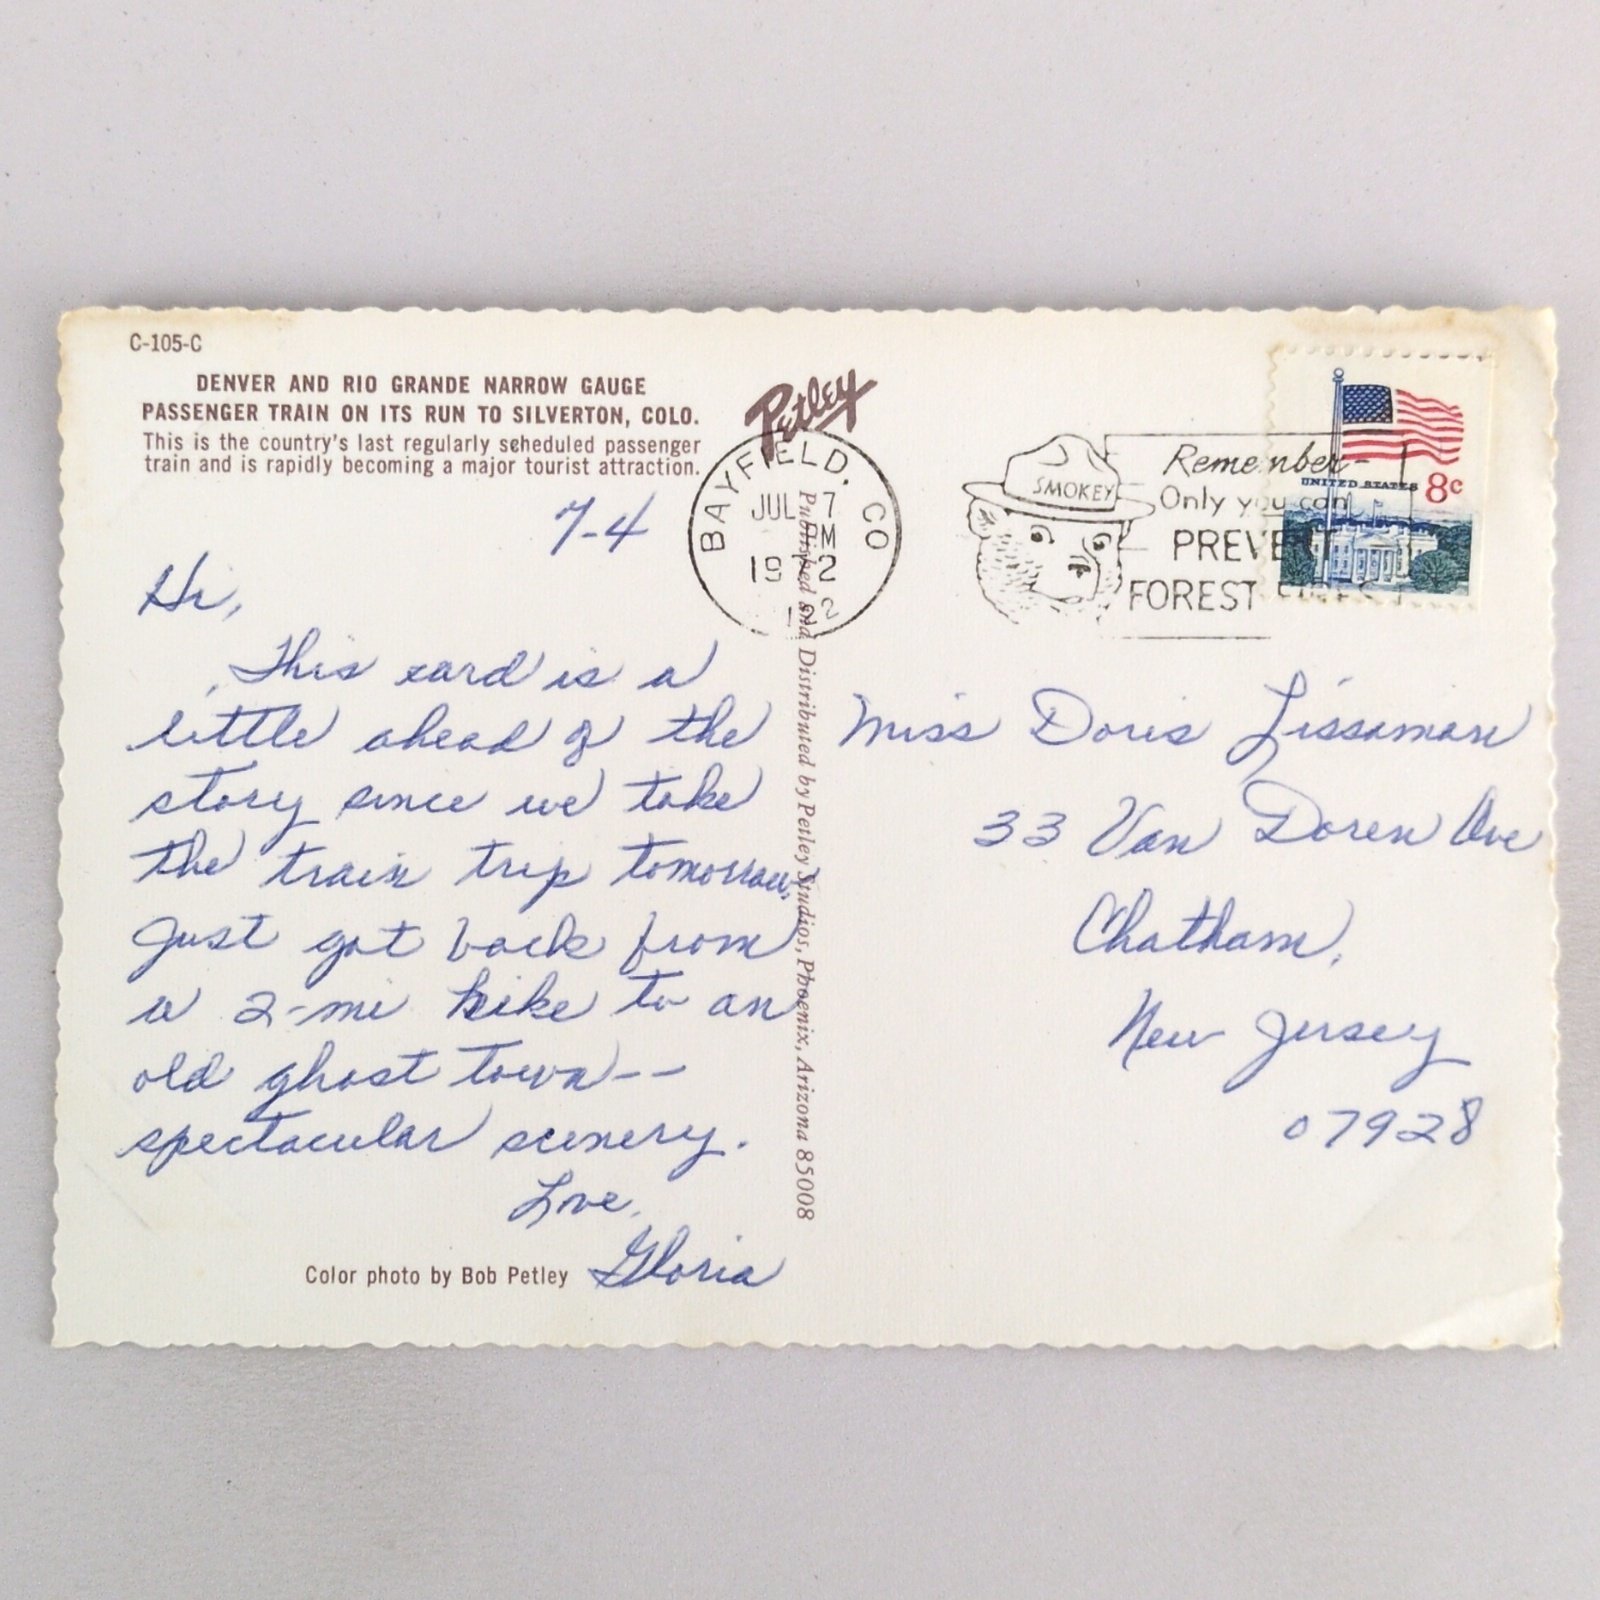 C-105-C
DENVER AND RIO GRANDE NARROW GAUGE
PASSENGER TRAIN ON ITS RUN TO SILVERTON, COLO.
This is the country's last regularly scheduled passenger
train and is rapidly becoming a major tourist attraction.
7-4
Hi,
This card is a
little ahead of the
story since we take
the train trip tomorrow.
Just got back from
a 2-mi hike to an
old ghost town--
spectacular scenery.
Love,
Gloria
Color photo by Bob Petley
Petley
Published and Distributed by Petley Studios, Phoenix, Arizona 85008
BAYFIELD, CO
JUL 7
PM
19 2
SMOKEY
Remember-
Only you can
PREVENT
FOREST FIRES
UNITED STATES 8c
Miss Doris Lissaman
33 Van Doren Ave
Chatham,
New Jersey
07928